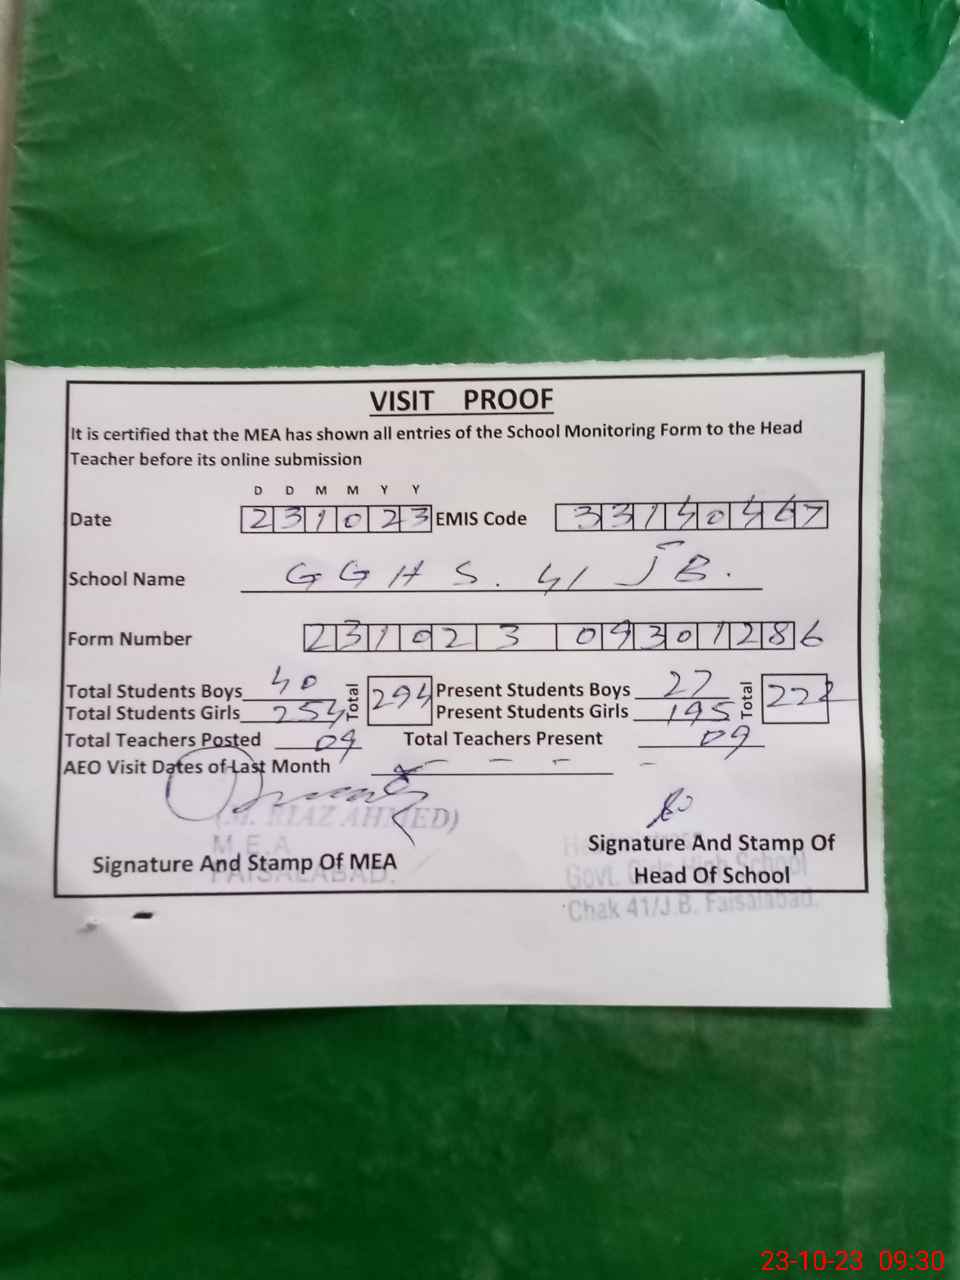 VISIT PROOF
It is certified that the MEA has shown all entries of the School Monitoring Form to the Head
Teacher before its online submission
D D M M Y Y
Date 231023 EMIS Code 33140467
School Name GGHS. 41 JB.
Form Number 231023 09301286
Total Students Boys 40 Total 294 Present Students Boys 27 Total 222
Total Students Girls 254 Present Students Girls 195
Total Teachers Posted 09 Total Teachers Present 09
AEO Visit Dates of Last Month - - - -
(M. RIAZ AHMED)
M.E.A
FAISALABAD.
Signature And Stamp Of MEA
Signature And Stamp Of
Head Of School
Govt. Girls High School
Chak 41/J.B. Faisalabad.
23-10-23 09:30